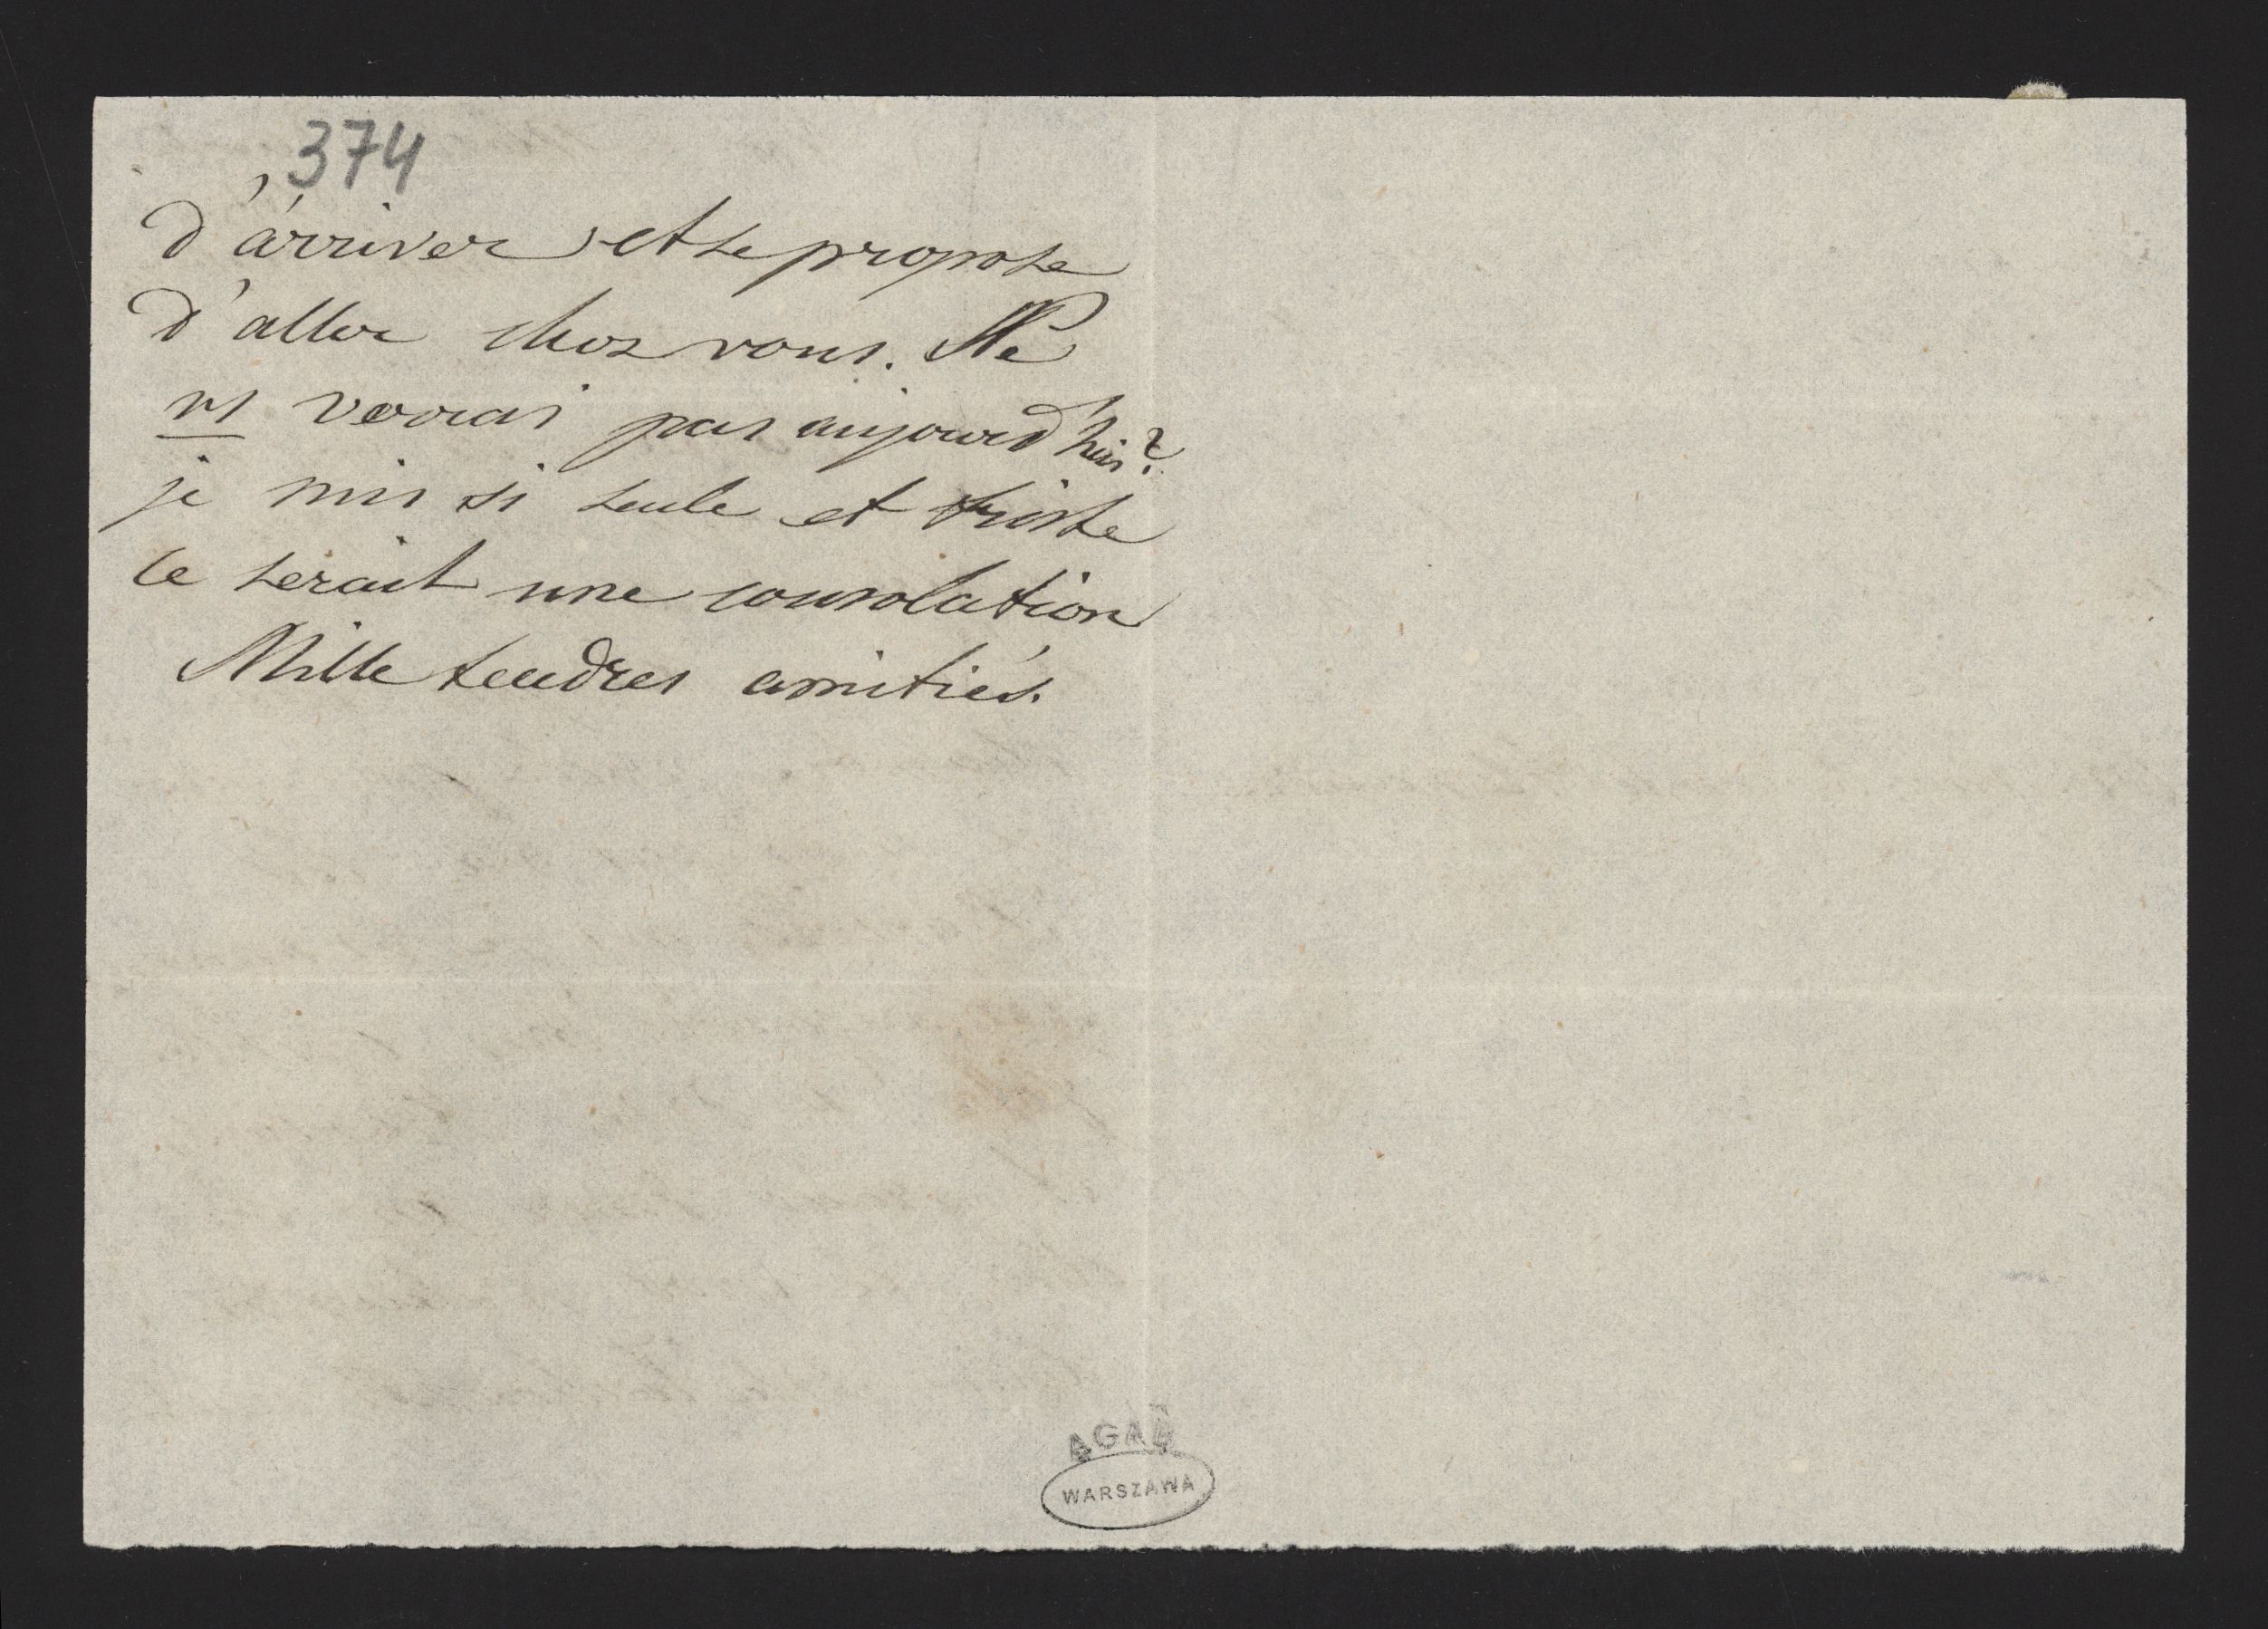 374
d'arriver et se propose
d'aller chez vous. Ne
vs verrai pas aujourd'hui?
je suis si seule et triste
ce serait une consolation
Mille tendres amitiés.
AGAD
WARSZAWA